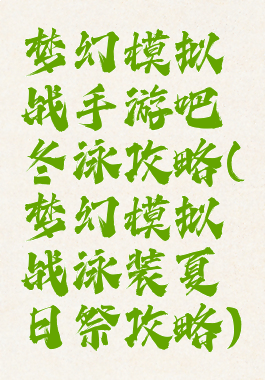 梦幻模拟
战手游吧
冬泳攻略(
梦幻模拟
战泳装夏
日祭攻略)